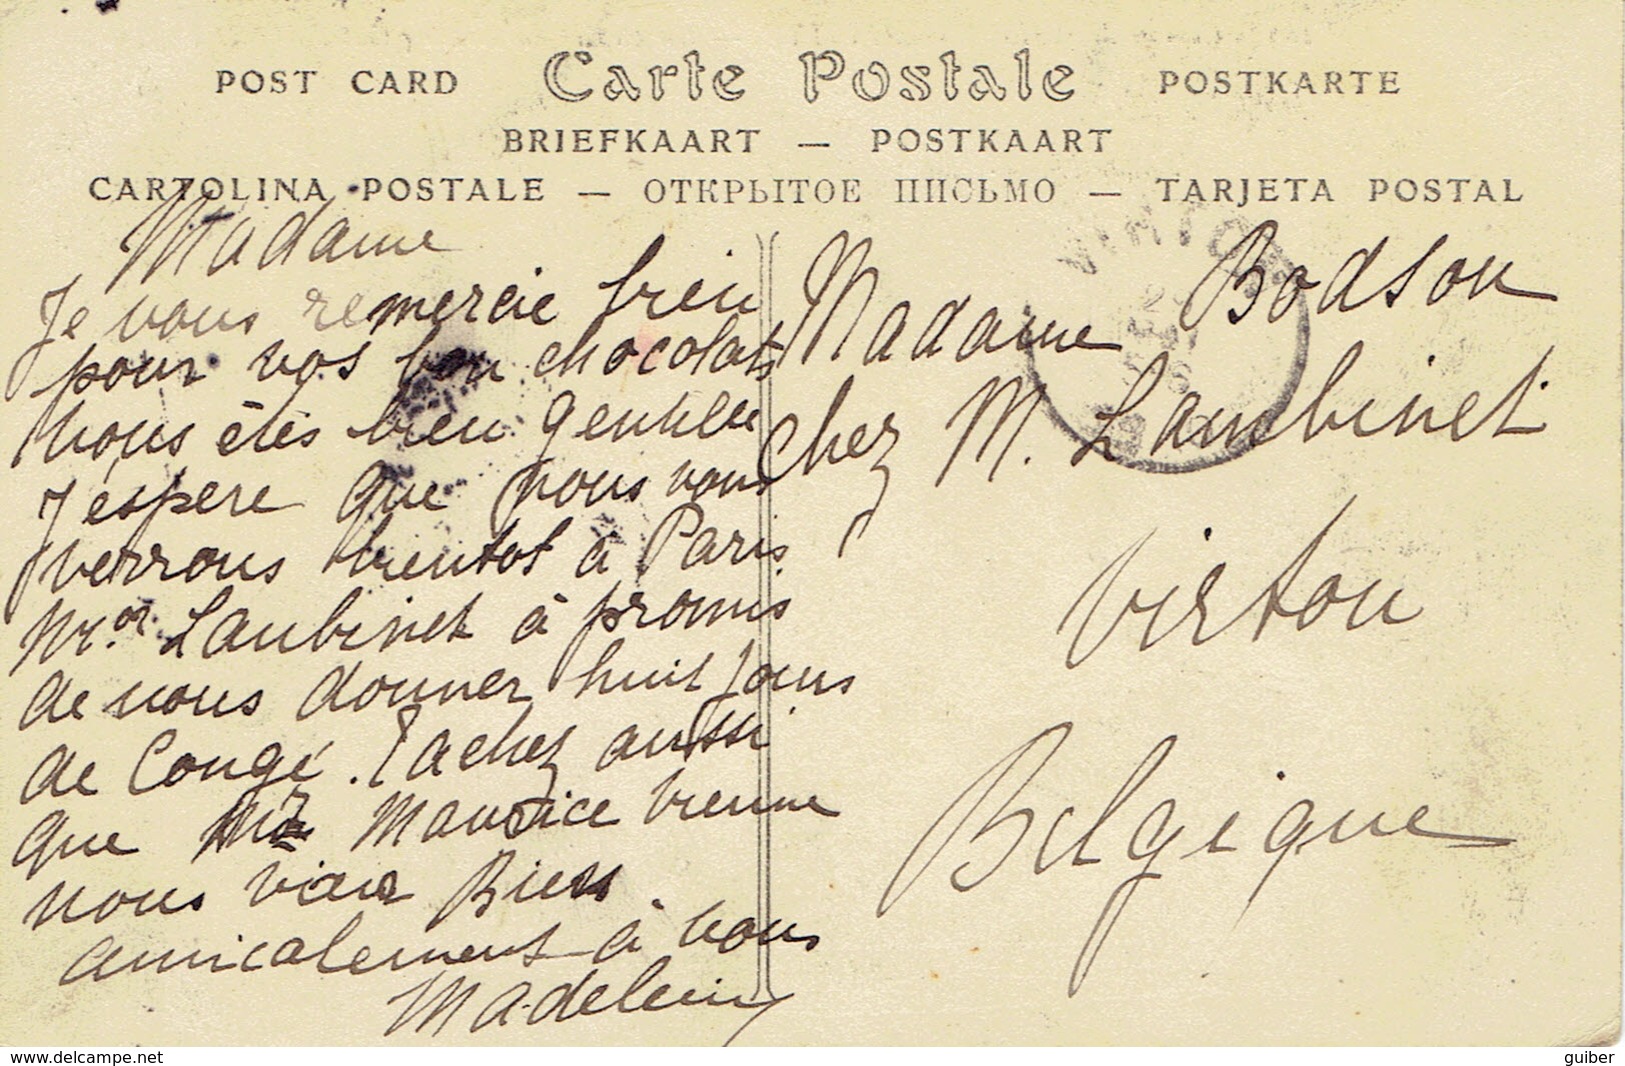 POST CARD Carte Postale POSTKARTE
BRIEFKAART — POSTKAART
CARTOLINA POSTALE — ОТКРЫТОЕ ПИСЬМО — TARJETA POSTAL
Madame
Je vous remercie bien
pour vos bon chocolats
vous étés bien gentille
J'éspere que nous vous
verrons bientot à Paris
Mr Laubinet à promis
de nous donner huit jours
de Congé. Tachez aussi
que Maurice vienne
nous voir Bien
amicalement à vous
Madeleine
Madame Bodson
chez M. Laubinet
Virton
Belgique
VIRTON
www.delcampe.net
guiber